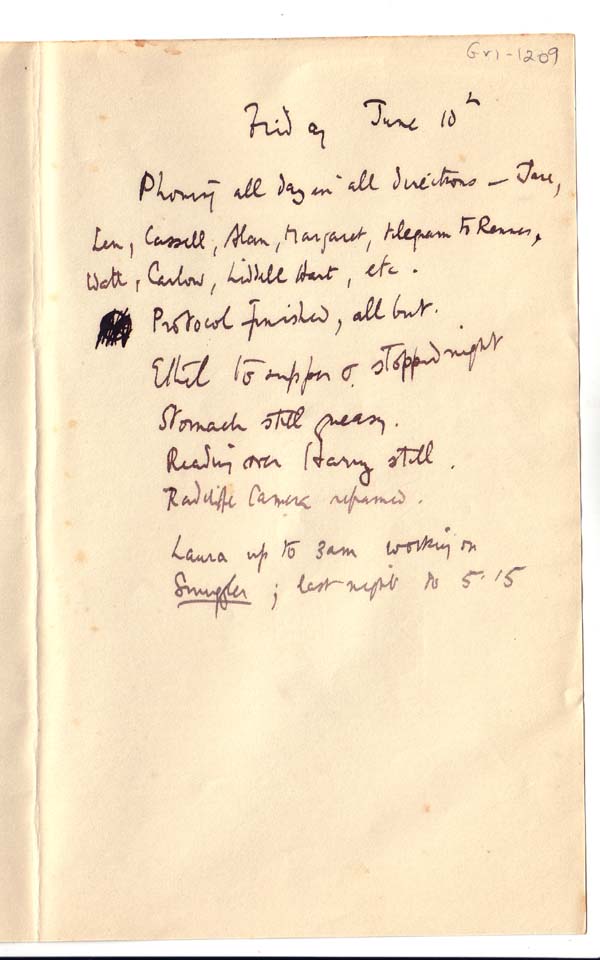 Gr1-1209
Friday June 10th
Phoning all day in all directions — Jane,
Len, Cassell, Alan, Margaret, telegram to Rennes,
Watt, Carlow, Liddell Hart, etc.
Protocol finished, all but.
Ethel to supper & stopped night
Stomach still queasy.
Reading over Harry still.
Radcliffe Camera reframed.
Laura up to 3am working on
Smuggler; last night to 5.15